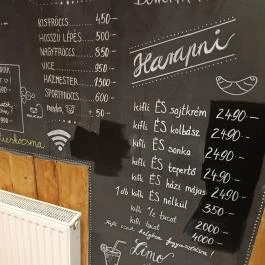 KISFRÖCCS ...... 450-
HOSSZÚ LÉPÉS ... 500-
NAGYFRÖCCS ..... 850-
VICE ........... 950-
HÁZMESTER ...... 1300-
SPORTFRÖCCS .... 600-
Harapni
kifli ÉS sajtkrém 2490.-
kifli ÉS kolbász 2490-
kifli ÉS sonka 2490-
kifli ÉS tepertő 2490-
kifli ÉS házi májas 2490-
1 db kifli ÉS nélkül 350-
kifli ½ tucat 2000-
kifli tucat 4000-
Limo